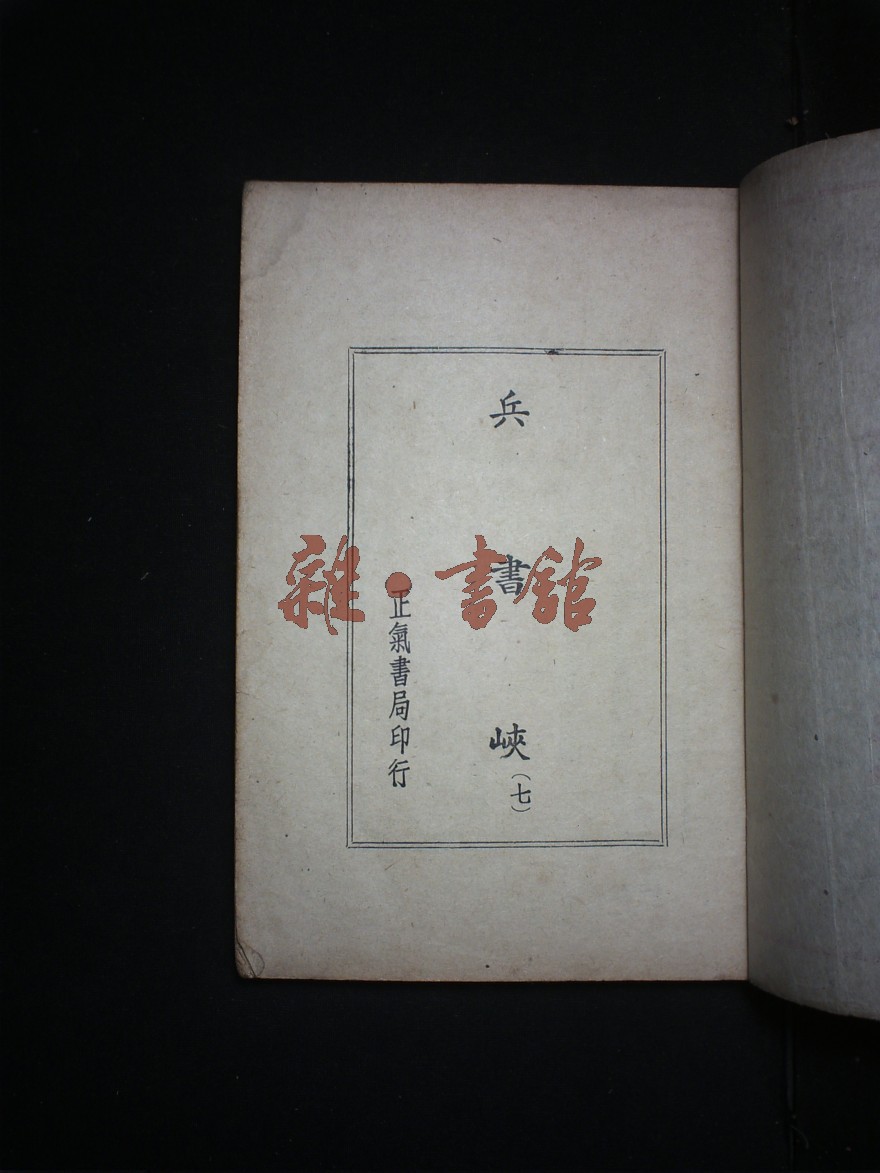 兵書峽(七)
正氣書局印行
雜·書館